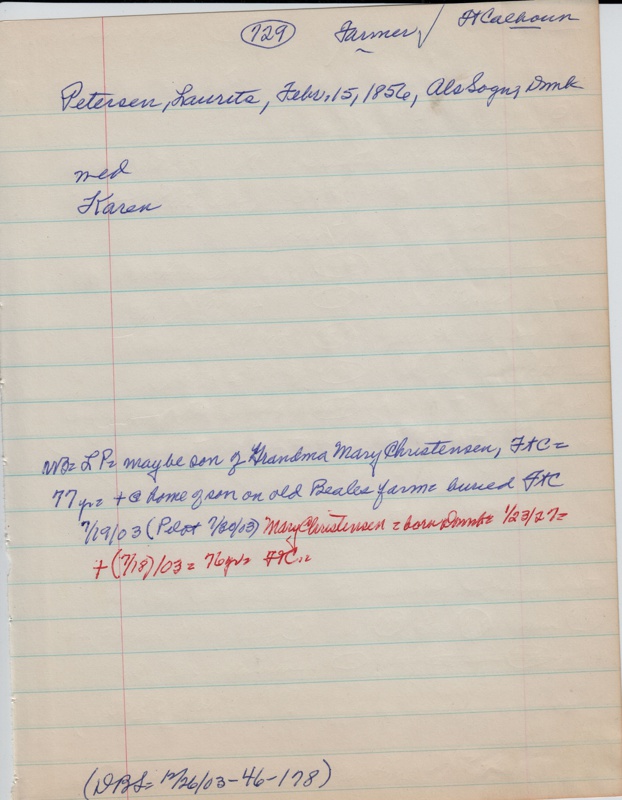 729 Farmer / FtCalhoun
Petersen, Laurits, Febr. 15, 1856, Als Sogn, Dmk
med
Karen
NB= LP= maybe son of Grandma Mary Christensen, FtC=
77 yr= + @ home of son on old Beales farm= buried FtC
7/19/03 (Pilot 7/30/03) Mary Christensen = born Dmk= 1/23/27=
+ (7/18)/03 = 76 yr= FtC.=
(DBS= 12/26/03-46-178)